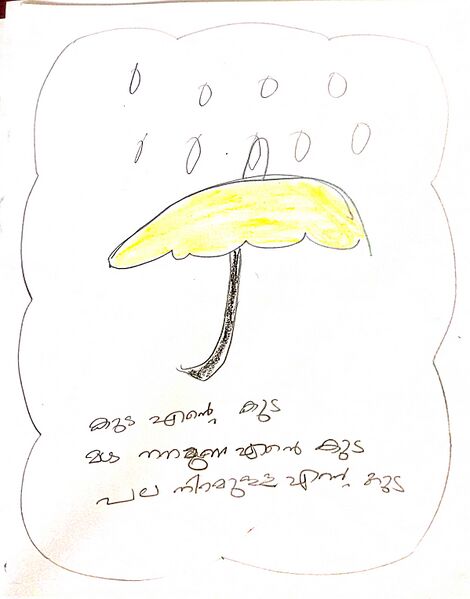 കുട എന്റെ കുട
മഴ എന്റെ കുട
പല നിറമുള്ള എന്റെ കുട